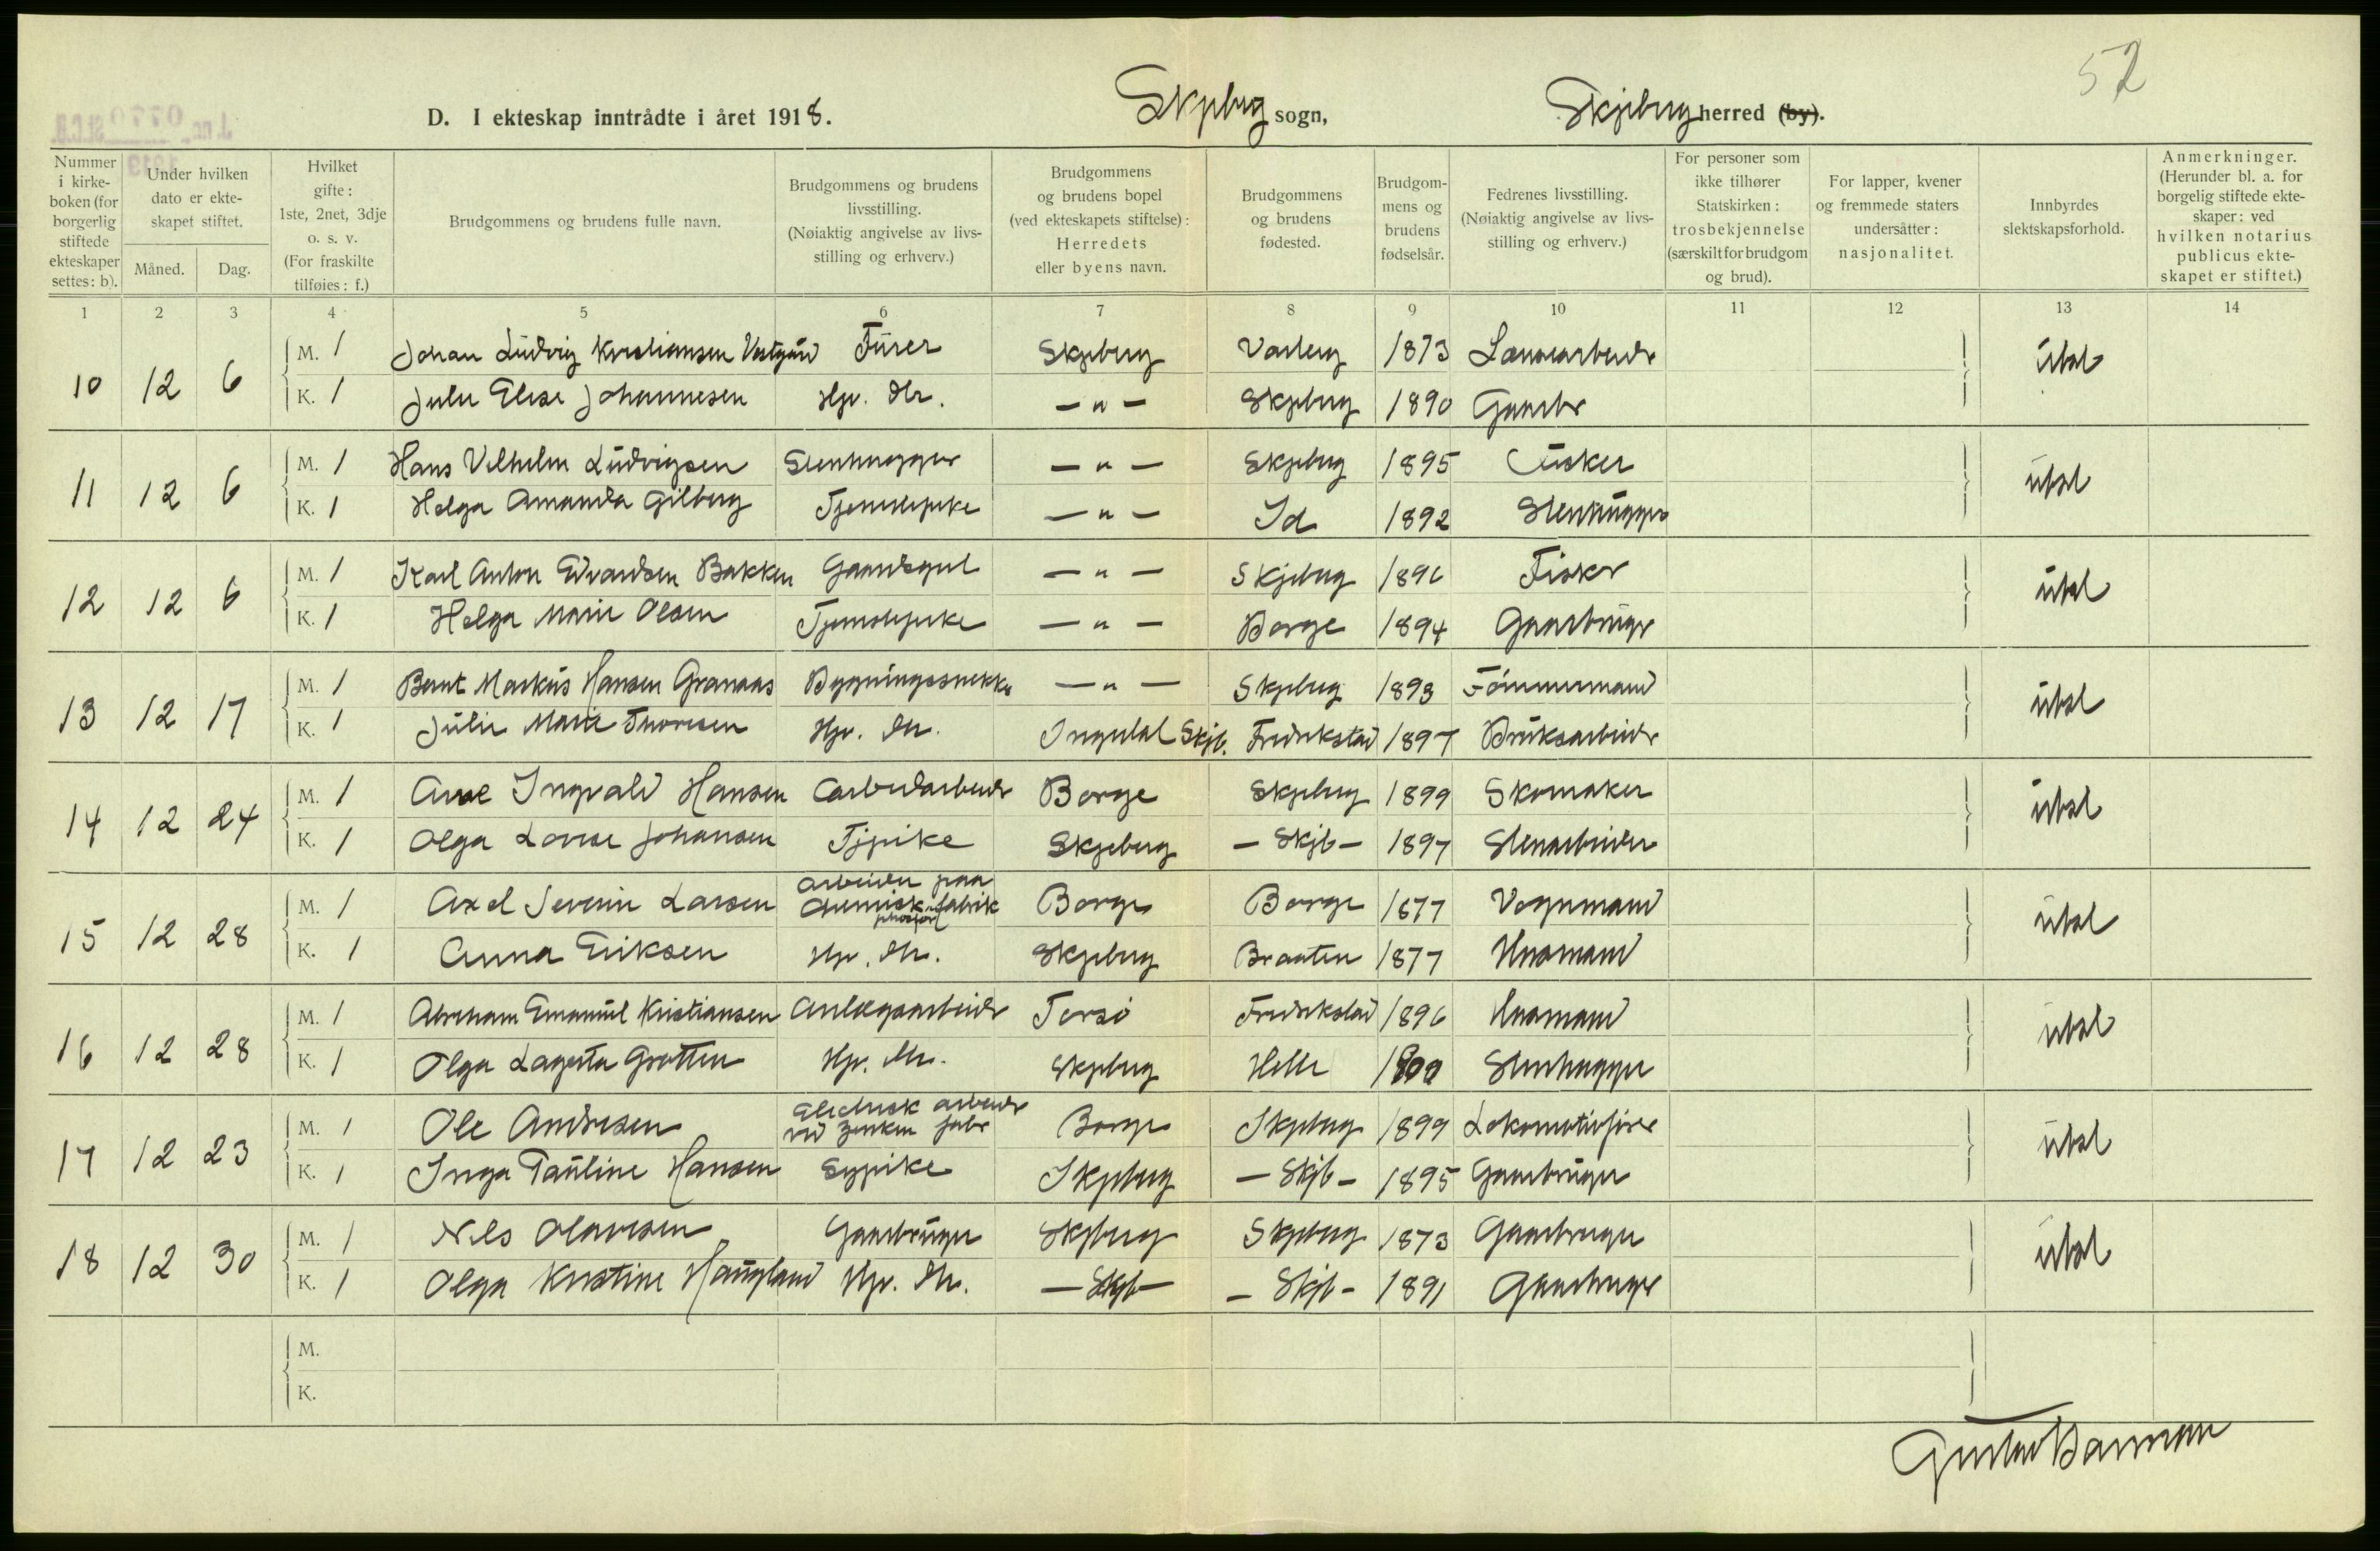 52
D. I ekteskap inntrådte i året 1918. Skjeberg sogn, Skjeberg herred (by).
Nummer i kirkeboken (for borgerlig stiftede ekteskaper settes: b).
Under hvilken dato er ekteskapet stiftet.
Måned. Dag.
Hvilket gifte: 1ste, 2net, 3dje o. s. v. (For fraskilte tilføies: f.)
Brudgommens og brudens fulle navn.
Brudgommens og brudens livsstilling. (Nøiaktig angivelse av livsstilling og erhverv.)
Brudgommens og brudens bopel (ved ekteskapets stiftelse): Herredets eller byens navn.
Brudgommens og brudens fødested.
Brudgommens og brudens fødselsår.
Fedrenes livsstilling. (Nøiaktig angivelse av livsstilling og erhverv.)
For personer som ikke tilhører Statskirken: trosbekjennelse (særskilt for brudgom og brud).
For lapper, kvener og fremmede staters undersåtter: nasjonalitet.
Innbyrdes slektskapsforhold.
Anmerkninger. (Herunder bl. a. for borgelig stiftede ekteskaper: ved hvilken notarius publicus ekteskapet er stiftet.)
1 2 3 4 5 6 7 8 9 10 11 12 13 14
10 12 6 M. 1 Johan Ludvig Kristiansen Vestgård Furer Skjeberg Varberg 1873 ubsl
K. 1 Julie Elise Johannesen Hjv. Mr. — " — Skjeberg 1890 Gaarbr
11 12 6 M. 1 Hans Vilhelm Ludvigsen Stenhugger — " — Skjeberg 1895 Fisker ubsl
K. 1 Helga Amanda Gilberg Tjenestepike — " — Id 1892 Stenhugger
12 12 6 M. 1 Karl Anton Edvardsen Bakken Gaardsgut — " — Skjeberg 1896 Fisker ubsl
K. 1 Helga Marie Olsen Tjenestepike — " — Borge 1894 Gaarbruger
13 12 17 M. 1 Bernt Markus Hansen Granaas Bygningssnekker — " — Skjeberg 1893 Tömmermand ubsl
K. 1 Julie Marie Thoresen Hjv. Mr. Ingedal Skjb. Fredrikstad 1897 Bruksarbeider
14 12 24 M. 1 Arne Ingvald Hansen Carbidarbeider Borge Skjeberg 1899 Skomaker ubsl
K. 1 Olga Lovise Johansen Tjpike Skjeberg — Skjb — 1897 Stenarbeider
15 12 28 M. 1 Axel Severin Larsen arbeider paa chemisk fabrik Borge Borge 1877 Vognmand ubsl
K. 1 Anna Eriksen Hjv. Mr. Skjeberg Braaten 1877 Husmand
16 12 28 M. 1 Abraham Emanuel Kristiansen Anlægsarbeider Torsö Fredrikstad 1896 Husmand ubsl
K. 1 Olga Lagerta Grotten Hjv. Mr. Skjeberg Helle 1900 Stenhugger
17 12 23 M. 1 Ole Andresen Electrisk arbeider ved zinken fabr Borge Skjeberg 1899 Lokomotivfører ubsl
K. 1 Inga Pauline Hansen Sypike Skjeberg — Skjb — 1895 Gaarbruger
18 12 30 M. 1 Nils Olavesen Gaarbruger Skjeberg Skjeberg 1873 Gaarbruger ubsl
K. 1 Olga Kristine Haugland Hjv. Mr. — Skjb — — Skjb — 1891 Gaarbruger
M.
K.